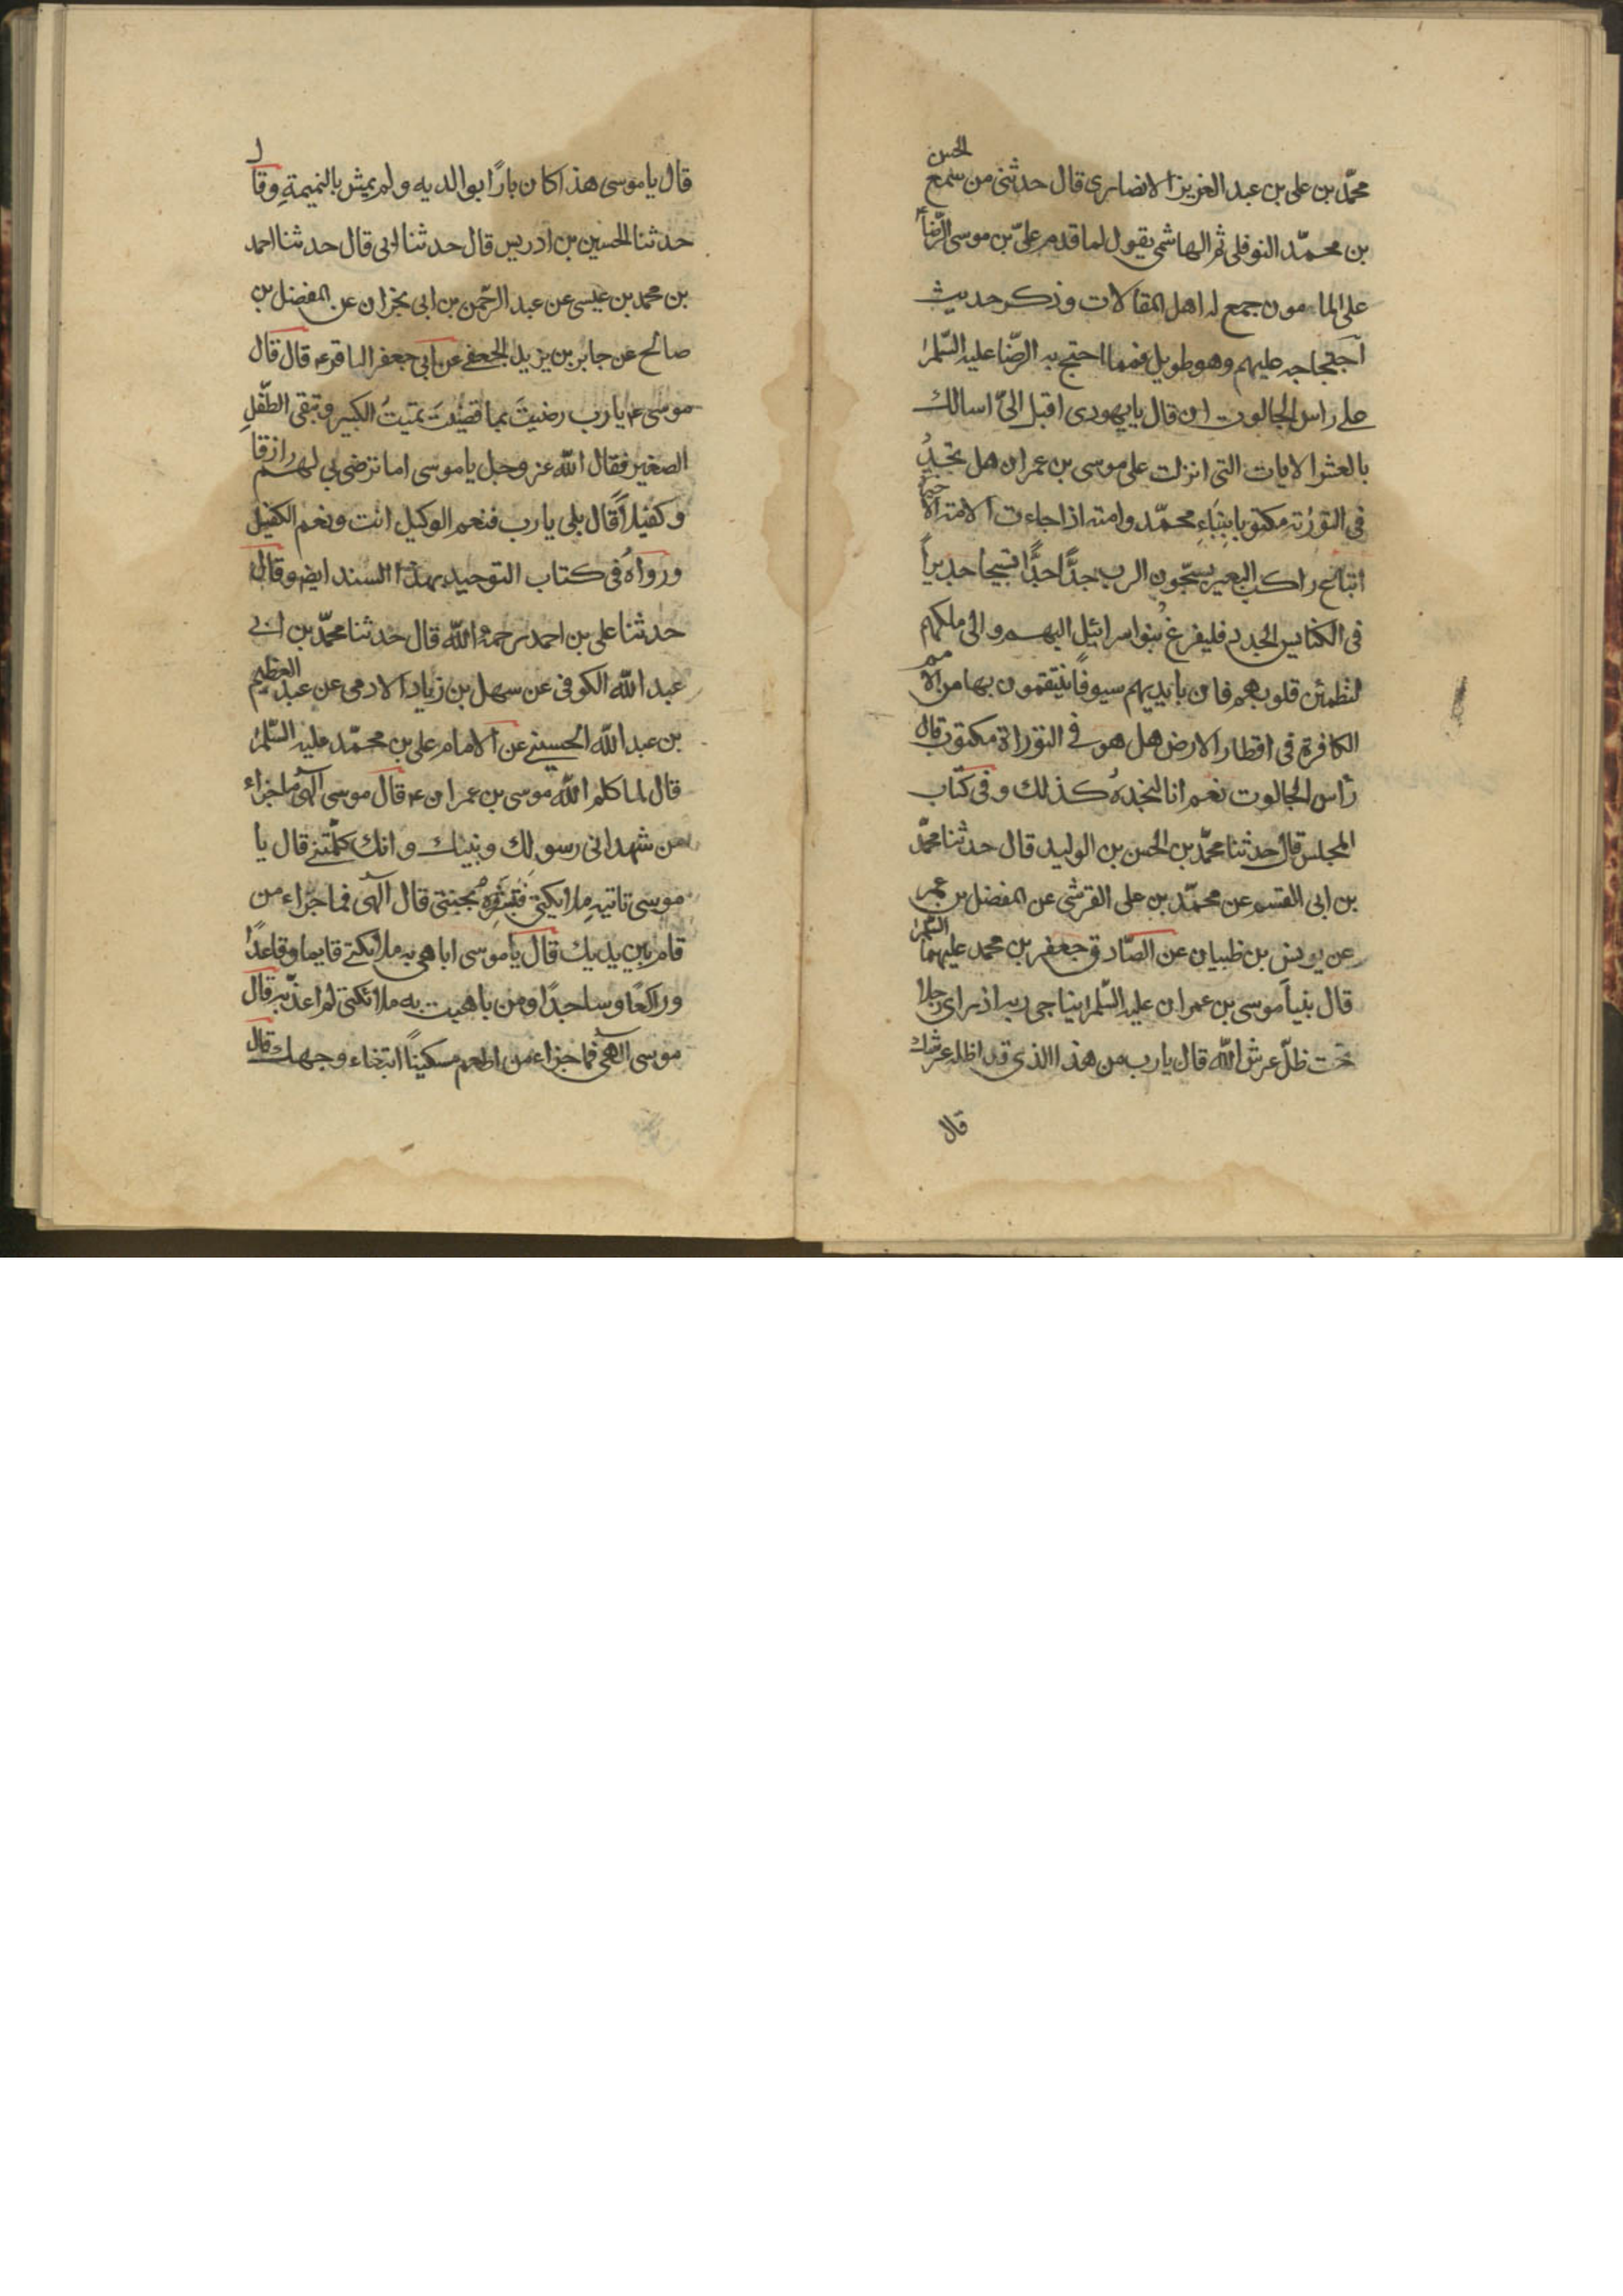 محمّد بن علی بن عبد العزیز الانصاری قال حدثنی من سمع الحسن
بن محمّد النوفلی ثم الهاشمی یقول لما قدم علیّ بن موسی الرّضاء
علی المامون جمع له اهل المقالات وذکر حدیث
احتجاجه علیهم وهو طویل فمما احتج به الرّضا علیه السّلم
علی راس الجالوت ان قال یا یهودی اقبل الیّ اسالك
بالعشر الایات التی انزلت علی موسی بن عمران هل تجدُ
فی التورٰته مکتوبا بنباءِ محمّد وامته اذا جاءت الامة الاخیرة
اتباع راکب البعیر یسبّحون الرب جدًّا جدًّا تسبیحا جدیداً
فی الکنایس الجدد فلیفرغ بنوا سرائیل الیهم والی ملکهم
لتطمئن قلوبهم فان بایدیهم سیوفاً ینتقمون بها من الامم
الکافرة فی اقطار الارض هل هو فی التوراة مکتوب قال
راس الجالوت نعم انا لنجدهُ کذلك وفی کتاب
المجلس قال حدثنا محمّد بن الحسن بن الولید قال حدثنا محمّد
بن ابی القسم عن محمّد بن علی القرشی عن المفضل بن عمر
عن یونس بن ظبیان عن الصّادق جعفر بن محمد علیهما السّلم
قال بنیاً موسی بن عمران علیه السّلم یناجی ربه اذ رای رجلا
تحت ظلّ عرش اللّه قال یا رب من هذا الذی قد اظله عرشك
قال
قال یا موسی هذا کان بارًّا بوالدیه ولم یمش بالنمیمةِ وقال
حدثنا الحسین بن ادریس قال حدثنا ابی قال حدثنا احمد
بن محمد بن عیسی عن عبد الرّحمن بن ابی نجران عن المفضل بن
صالح عن جابر بن یزید الجعفی عن ابی جعفر الباقر ع قال قال
موسی ع یا رب رضیتَ بما قضیت تمیتُ الکبیر وتبقی الطّفلِ
الصغیر فقال اللّه عز وجل یا موسی اما ترضی بی لهم رازقا
وکفیلاً قال بلی یا رب فنعم الوکیل انت ونعم الکفیل
ورواهُ فی کتاب التوحید بهذا السند ایضَ وقال
حدثنا علی بن احمد رحمه اللّه قال حدثنا محمّد بن ابی
عبد اللّه الکوفی عن سهل بن زیاد الادمی عن عبد العظیم
بن عبد اللّه الحسینی عن الامام علی بن محمّد علیه السّلم
قال لما کلم اللّه موسی بن عمران ع قال موسی الٰهی ما جزاء
من شهد انی رسولك ونبیك وانك کلّمتنی قال یا
موسی تاتیه ملائکتی فتبشّرهُ بجنتی قال الٰهی فما جزاء من
قام بین یدیك قال یا موسی اباهی به ملائکتی قایما وقاعدًا
وراکعًا وساجدًا ومن باهیت به ملائکتی لم اعذّبه قال
موسی الهی فما جزاء من اطعم مسکیناً ابتغاء وجهك قال